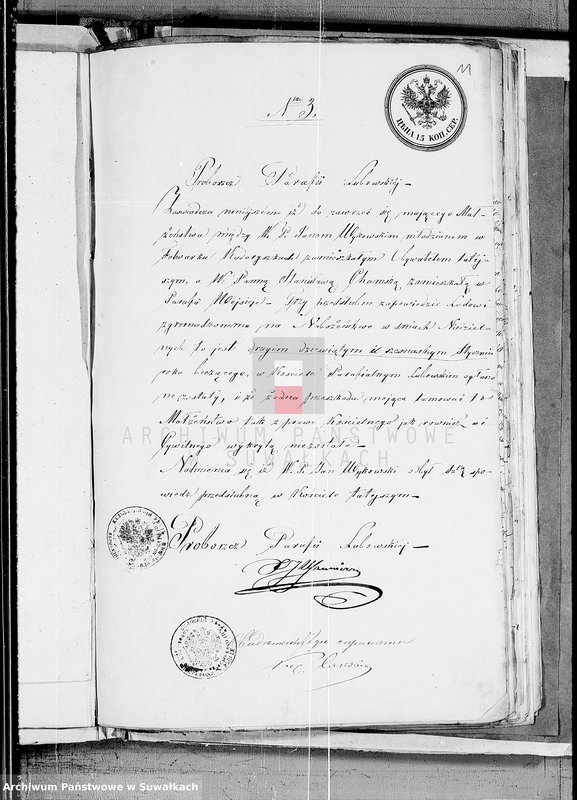 11
ЦѢНА 15 КОП. СЕР.
Nro 3.
Proboszcz Parafii Lubowskiéj
Zaswiadcza niniejszem iż do zawrzeć się mającego Mał-
żeństwa między W. P. Janem niedzianem w
Folwarku zamieszkałym Obywatelem tutej-
szym, a W. Panną Stanisławą zamieszkałą w
Parafii Trzy przedślubne zapowiedzie Ludowi
zgromadzonemu na Nabożeństwo w dniach Niedziel-
nych to jest drugim dziewiątym i szesnastym Stycznia
roku bieżącego, w Kościele Parafialnym Lubowskim ogłoszo-
ne zostały, i że żadna przeszkoda mająca tamować to
Małżeństwo tak z prawa Kościelnego jak rownież i
Cywilnego wykrytą niezostała
Nadmienia się iż W. P. Jan odbył spo-
wiedź przedślubną w Kościele tutejszym
Proboszcz Parafii Lubowskiéj
ARCHIWUM PAŃSTWOWE
W SUWAŁKACH
Archiwum Państwowe w Suwałkach